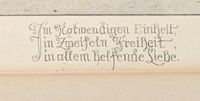 Im Notwendigen Einheit,
in Zweifeln Freiheit,
in allem helfende Liebe.